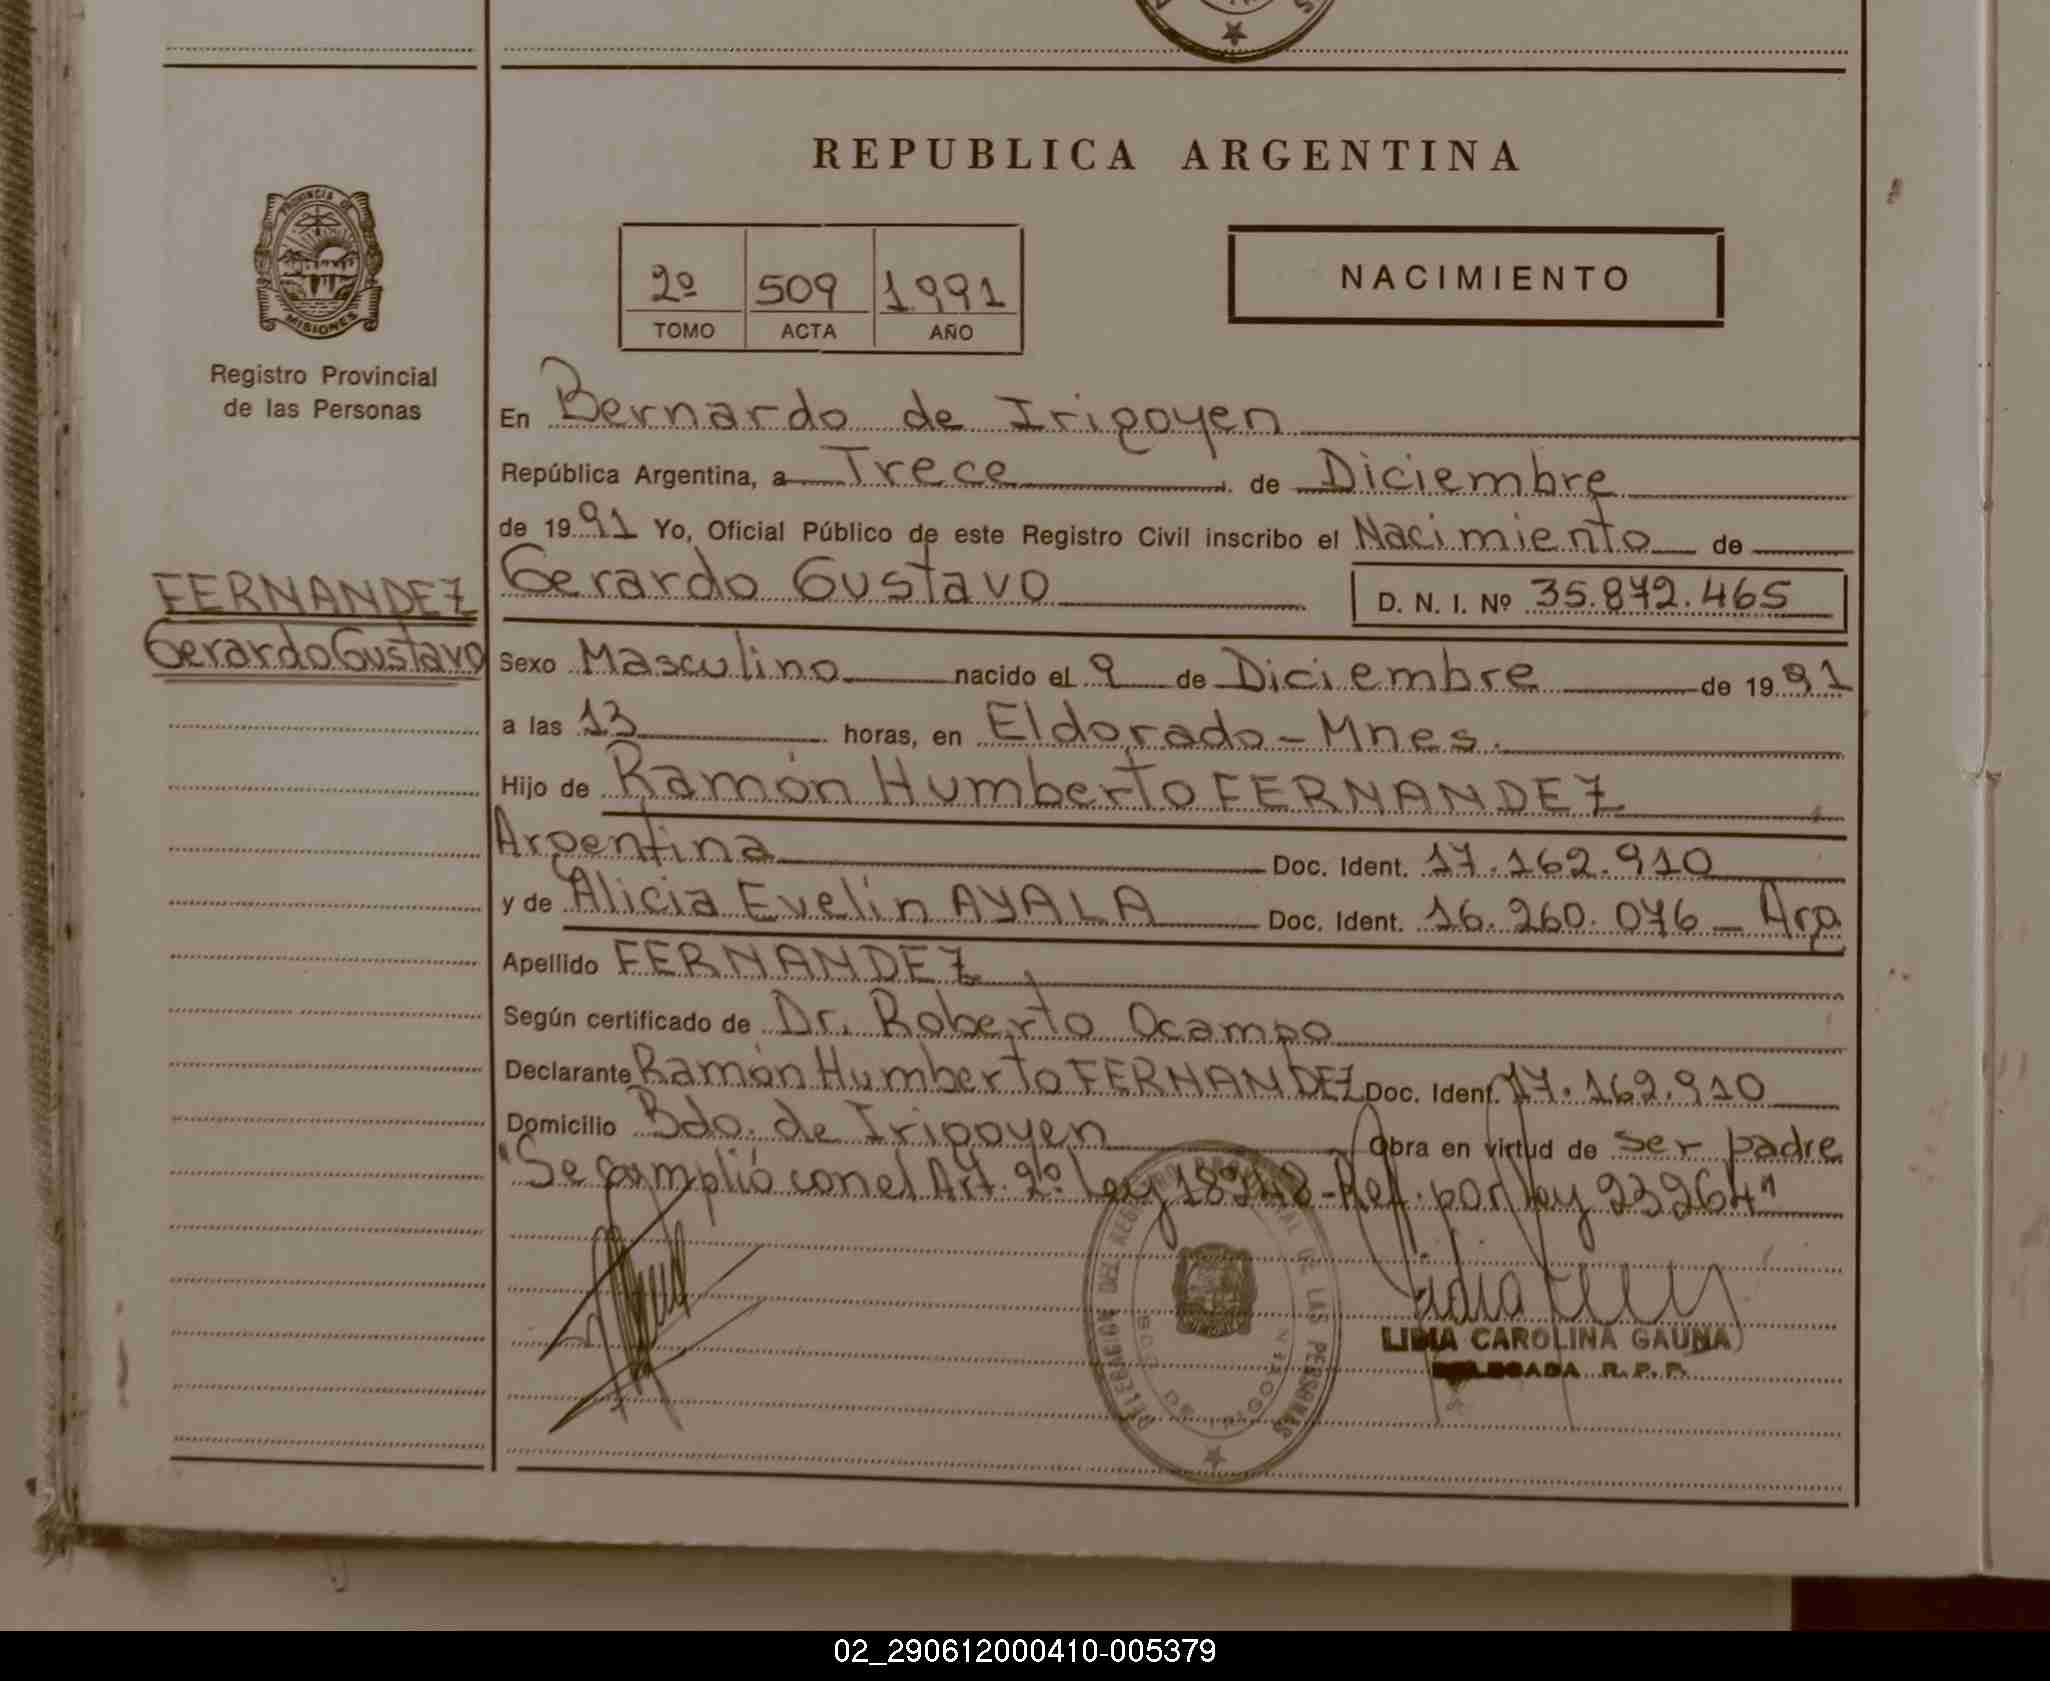 REPUBLICA ARGENTINA
PROVINCIA DE
MISIONES
Registro Provincial
de las Personas
2º 509 1991
TOMO ACTA AÑO
NACIMIENTO
En Bernardo de Irigoyen
República Argentina, a Trece de Diciembre
de 1991 Yo, Oficial Público de este Registro Civil inscribo el Nacimiento de
FERNANDEZ
Gerardo Gustavo
Gerardo Gustavo D. N. I. Nº 35.872.465
Sexo Masculino nacido el 9 de Diciembre de 1991
a las 13 horas, en Eldorado - Mnes.
Hijo de Ramón Humberto FERNANDEZ
Argentina Doc. Ident. 17.162.910
y de Alicia Evelin AYALA Doc. Ident. 16.260.076 - Arg
Apellido FERNANDEZ
Según certificado de Dr. Roberto Ocampo
Declarante Ramón Humberto FERNANDEZ Doc. Ident. 17.162.910
Domicilio Bdo. de Irigoyen Obra en virtud de ser padre
"Se cumplió con el Art. 2º. Ley 18248 - Ref. por ley 23264"
DELEGACION DEL REGISTRO PROVINCIAL DE LAS PERSONAS
BDO. DE IRIGOYEN
LIDIA CAROLINA GAUNA
DELEGADA R.P.P.
02_290612000410-005379